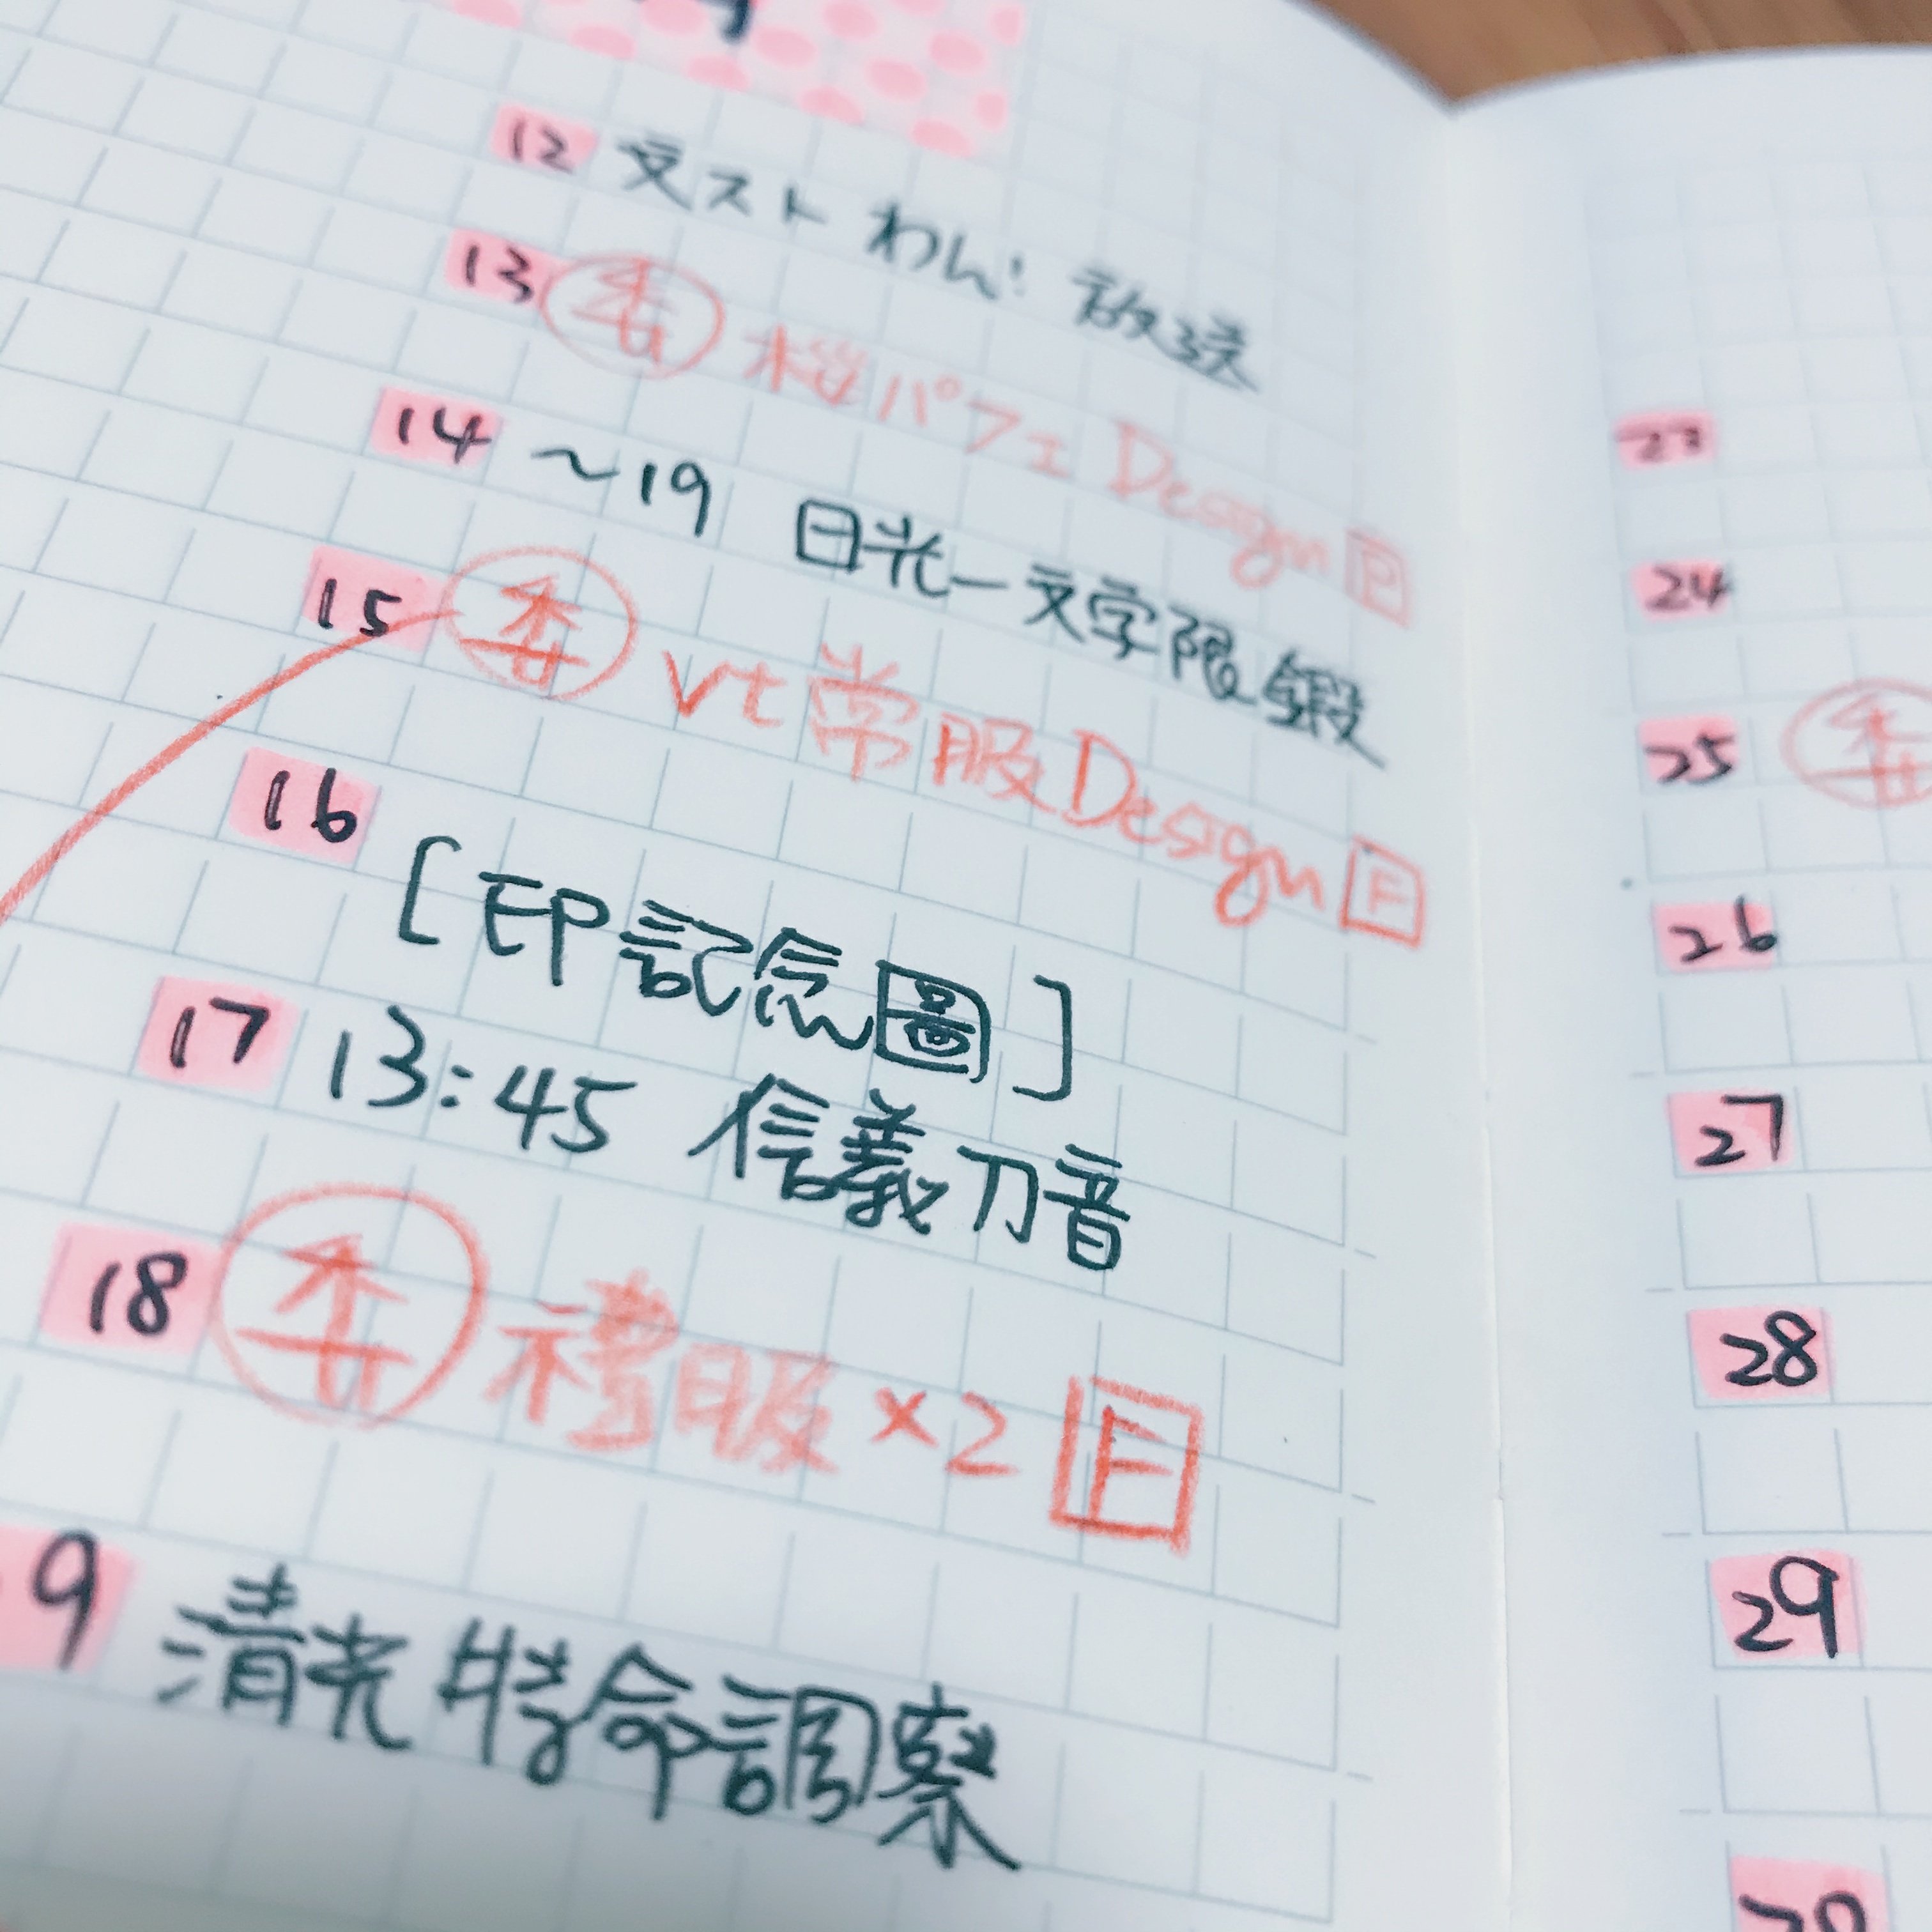 12 文スト わん! 放送
13 委 桜パフェ Design P
14 ～19 日光一文字限鍛
15 委 vt常服Design F
16
[印記念圖]
17 13:45 信義刀音
18 委 禮服 ×2 F
9 清光特命調察
23
24
25 委
26
27
28
29